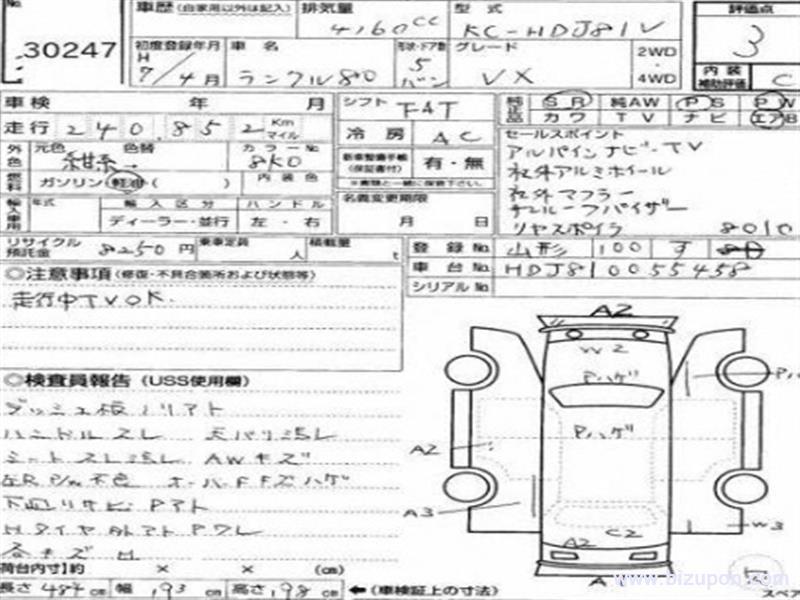 No. 30247
車歴 (自家用以外は記入) 排気量 4160cc 型式 KC-HDJ81V
初度登録年月 H 7/4月 車名 ランクル80 形状・ドア数 5 バン グレード VX 2WD・4WD
評価点 3
内装補助評価 C
車検 年 月 シフト FAT 純正品 SR 純AW PS PW
カワ TV ナビ エアB
走行 240,852 Km マイル 冷房 AC
セールスポイント
アルパインナビ・TV
社外アルミホイール
社外マフラー
リヤスポイラ 8010
外色 元色 紺系 色替 カラーNo. 8K0
新車整備手帳(保証書付) 有・無
※書類と一緒に保管下さい。
燃料 ガソリン 軽油 ( ) 内装色
名義変更期限 月 日
輸入車用 年式 輸入区分 ハンドル
ディーラー・並行 左・右
リサイクル預託金 8250円 乗車定員 人 積載量 t
登録No. 山形 100 す
車台No. HDJ810055458
シリアルNo.
◎注意事項 (修復・不具合箇所および状態等)
走行中TVOK.
◎検査員報告 (USS使用欄)
ダッシュ板ノリアト
ハンドルスレ 天バリ汚レ
シートスレ汚レ AWキズ
左R P/W不良 オーバーFFキズハゲ
下廻りサビPアト
各キズ H
荷台内寸 約 × × (cm)
長さ 484cm 幅 193cm 高さ 198cm ←(車検証上の寸法)
A2
W2
Pハゲ
Pハゲ
A2
A3
W3
C2
A2
スペア
www.bizupon.com